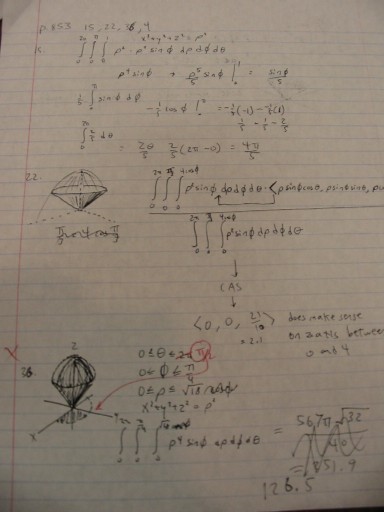 p. 853 15, 22, 36, 4
x²+y²+z² = ρ²
∫₀^2π ∫₀^π ∫₀^1 ρ² · ρ² sinφ dρ dφ dθ
ρ⁴ sinφ → ρ⁵/5 sinφ |₀^1 = sinφ/5
1/5 ∫₀^π sinφ dφ -1/5 cosφ |₀^π = -1/5(-1) - -1/5(1)
∫₀^2π 2/5 dθ = 2θ/5 2/5(2π-0) = 4π/5
22.
∫₀^2π ∫₀ ∫₀^4cosφ ρ² sinφ dρ dφ dθ · <ρ sinφ cosθ, ρ sinθ sinφ,
∫₀^2π ∫₀ ∫₀^4cosφ ρ² sinφ dρ dφ dθ
↓
CAS
↓
<0, 0, 21/10> does make sense
= 2.1 on z axis between
0 and 4
x 36 z
0 ≤ θ ≤ 2π
0 ≤ φ ≤ π/4
0 ≤ ρ ≤ √18
x²+y²+z² = ρ²
x y
∫₀^2π ∫₀ ∫₀ ρ⁴ sinφ dρ dφ dθ =
126.5